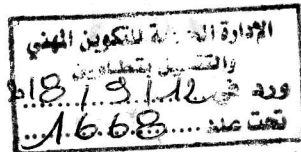 الإدارة الجهوية للتكوين المهني
والتشغيل بتطاوين
ورد في 18/9/12
تحت عدد 1668